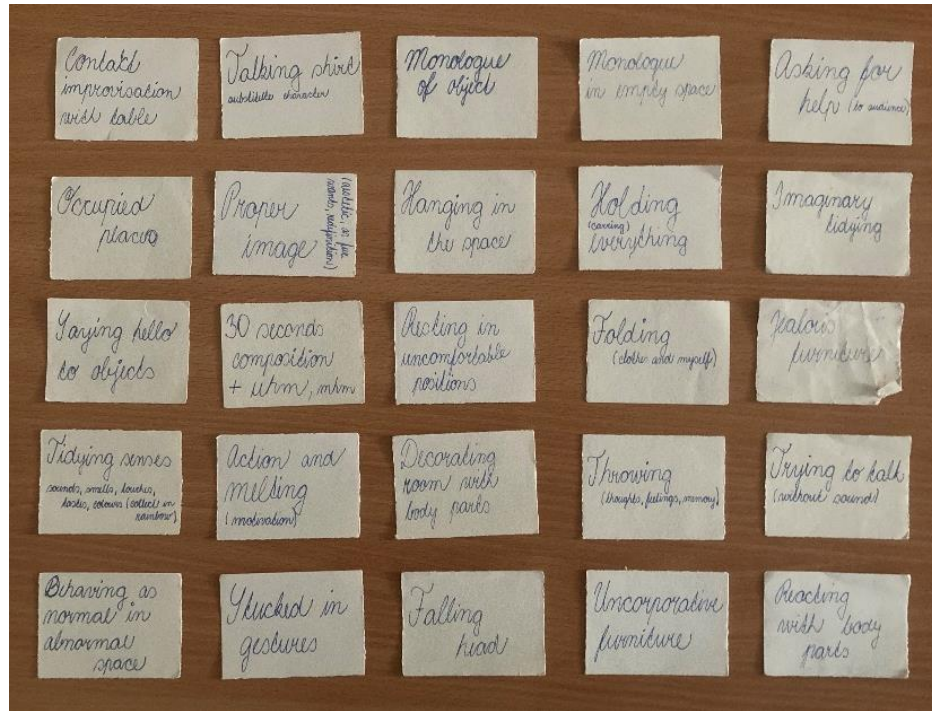 Contact
improvisation
with table
Talking shirt
substitute character
Monologue
of object
Monologue
in empty space
Asking for
help (to audience)
Occupied
place
Proper
image
(aestetic, as five
Hanging in
the space
Holding
(carring)
everything
Imaginary
tidying
Saying hello
to objects
30 seconds
composition
+ uhm, mhm
Resting in
uncomfortable
positions
Folding
(clothes and myself)
Jealous
furniture
Tidying senses
sounds, smells, touches,
tastes, colours (collect in
rainbow)
Action and
melting
(motivation)
Decorating
room with
body parts
Throwing
(thoughts, feelings, memory)
Trying to talk
(without sound)
Behaving as
normal in
abnormal
space
Stucked in
gestures
Falling
head
Uncorporative
furniture
Reacting
with body
parts